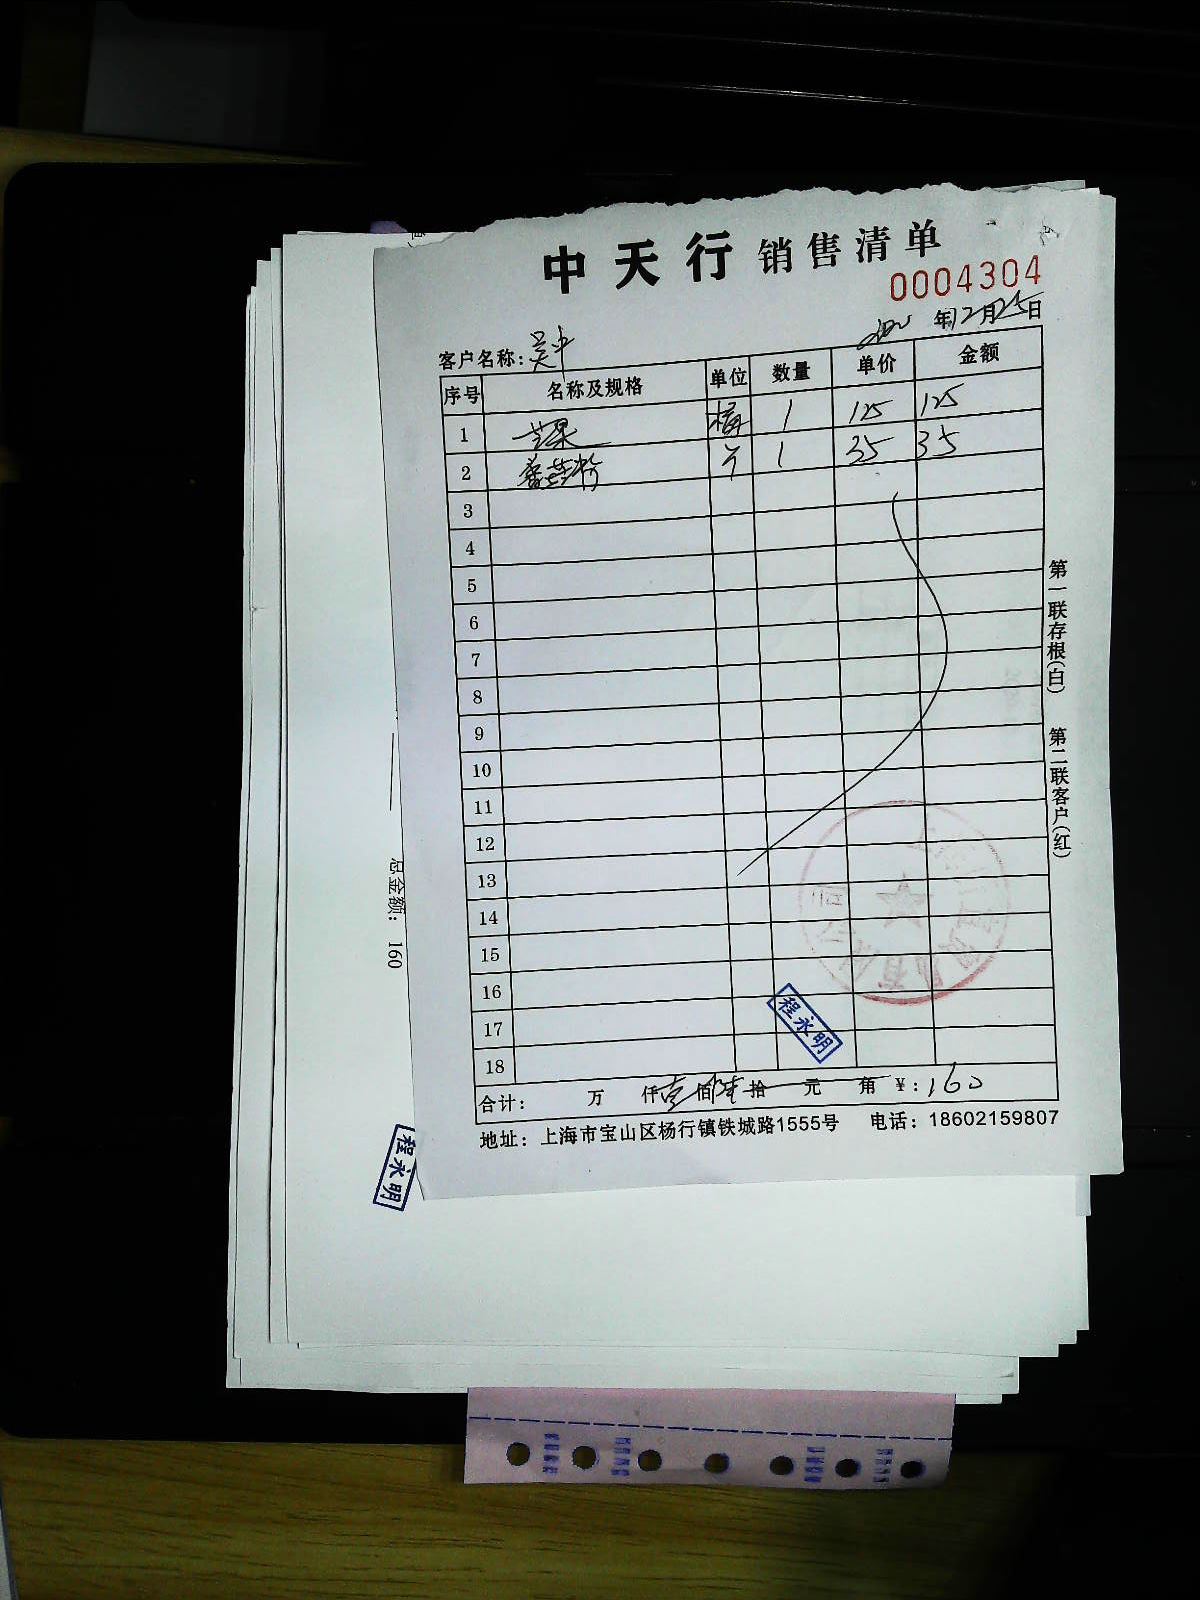 中天行 销售清单
0004304
年12月25日
客户名称：吴中
序号 名称及规格 单位 数量 单价 金额
1 芒果 1 125 125
2 1 35 35
3
4
5
6
7
8
9
10
11
12
13
14
15
16
17
18
合计： 万 仟壹佰陆拾 元 角 ¥：160
地址：上海市宝山区杨行镇铁城路1555号 电话：18602159807
第一联存根(白) 第二联客户(红)
程永明
总金额： 160
程永明